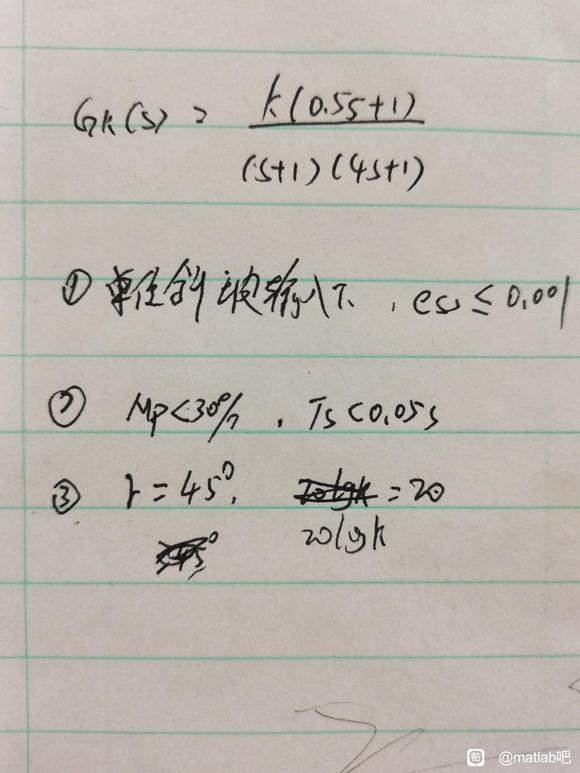 GK(s) = K(0.5s+1)
(s+1)(4s+1)
① 单位斜坡输入下, ess ≤ 0.001
② Mp<30%, Ts<0.05s
③ r = 45°, = 20
20lgk
贴 @matlab吧